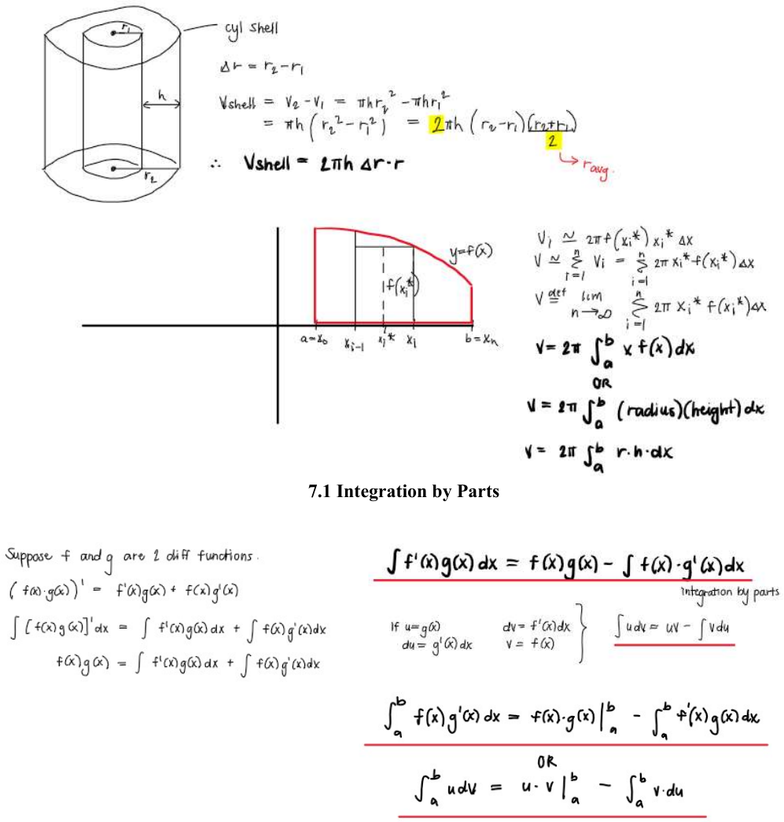 r₁
cyl shell
Δr = r₂-r₁
h
Vshell = V₂-V₁ = πhr₂² - πhr₁²
= πh(r₂²-r₁²) = 2πh(r₂-r₁)(r₂+r₁)/2
r avg.
r₂
∴ Vshell = 2πh Δr·r
y=f(x)
f(xᵢ*)
a=x₀ xᵢ₋₁ xᵢ* xᵢ b=xₙ
Vᵢ ≃ 2πf(xᵢ*) xᵢ* Δx
V ≃ ∑ᵢ₌₁ⁿ Vᵢ = ∑ᵢ₌₁ⁿ 2π xᵢ* f(xᵢ*)Δx
V def= lim n→∞ ∑ᵢ₌₁ⁿ 2π xᵢ* f(xᵢ*)Δx
V = 2π ∫ₐᵇ x f(x) dx
OR
V = 2π ∫ₐᵇ (radius)(height) dx
V = 2π ∫ₐᵇ r·h·dx
7.1 Integration by Parts
Suppose f and g are 2 diff functions.
(f(x)·g(x))' = f'(x)g(x) + f(x)g'(x)
∫[f(x)g(x)]'dx = ∫ f'(x)g(x)dx + ∫ f(x)g'(x)dx
f(x)g(x) = ∫ f'(x)g(x)dx + ∫ f(x)g'(x)dx
∫f'(x)g(x)dx = f(x)g(x) - ∫f(x)·g'(x)dx
integration by parts
If u=g(x) dv = f'(x)dx } ∫udv = uv - ∫vdu
du = g'(x)dx v = f(x)
∫ₐᵇ f(x)g'(x)dx = f(x)·g(x)|ₐᵇ - ∫ₐᵇ f'(x)g(x)dx
OR
∫ₐᵇ udv = u·v|ₐᵇ - ∫ₐᵇ v·du